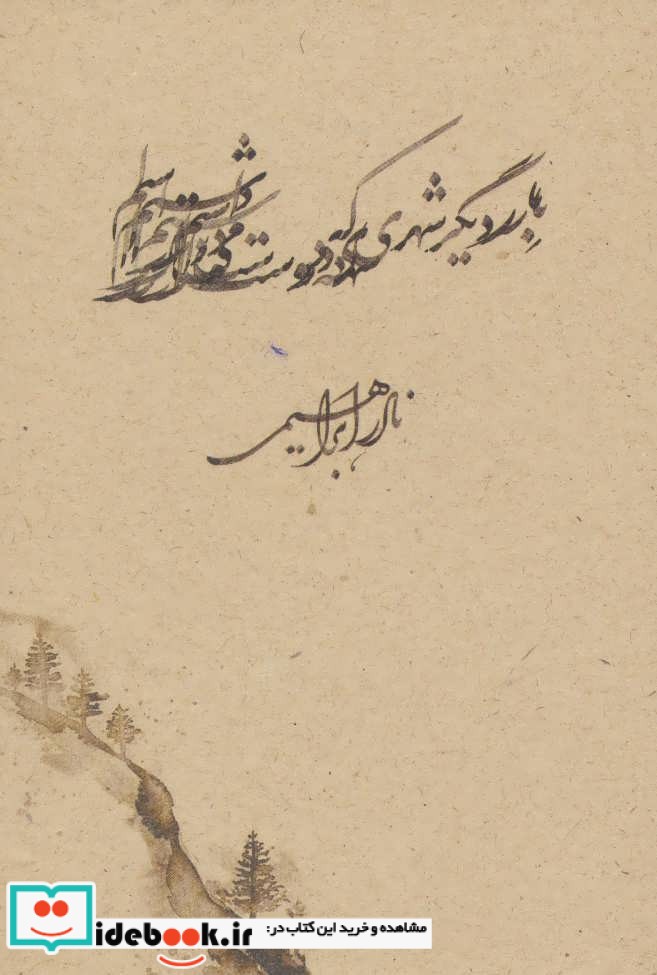 بار دیگر شهری که دوست می‌داشتم
نادر ابراهیمی
مشاهده و خرید این کتاب در:
idebook.ir